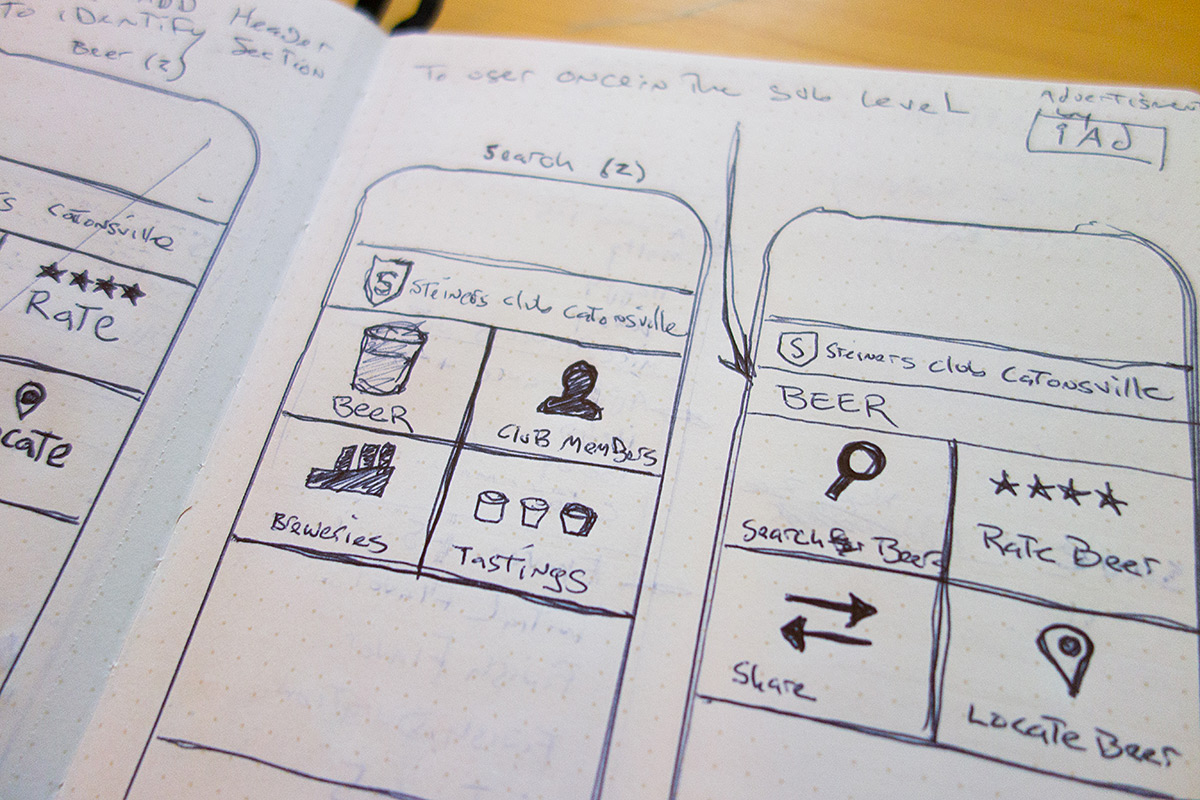 ADD Header
To iDentify Section
Beer (2)
Catonsville
Rate
cate
To user once in The sub level
Advertismen
by
iAd
Search (2)
S Steiners club Catonsville
Beer
Club Members
Breweries
Tastings
S Steiners club Catonsville
BEER
Search for Beer
Rate Beer
Share
Locate Beer